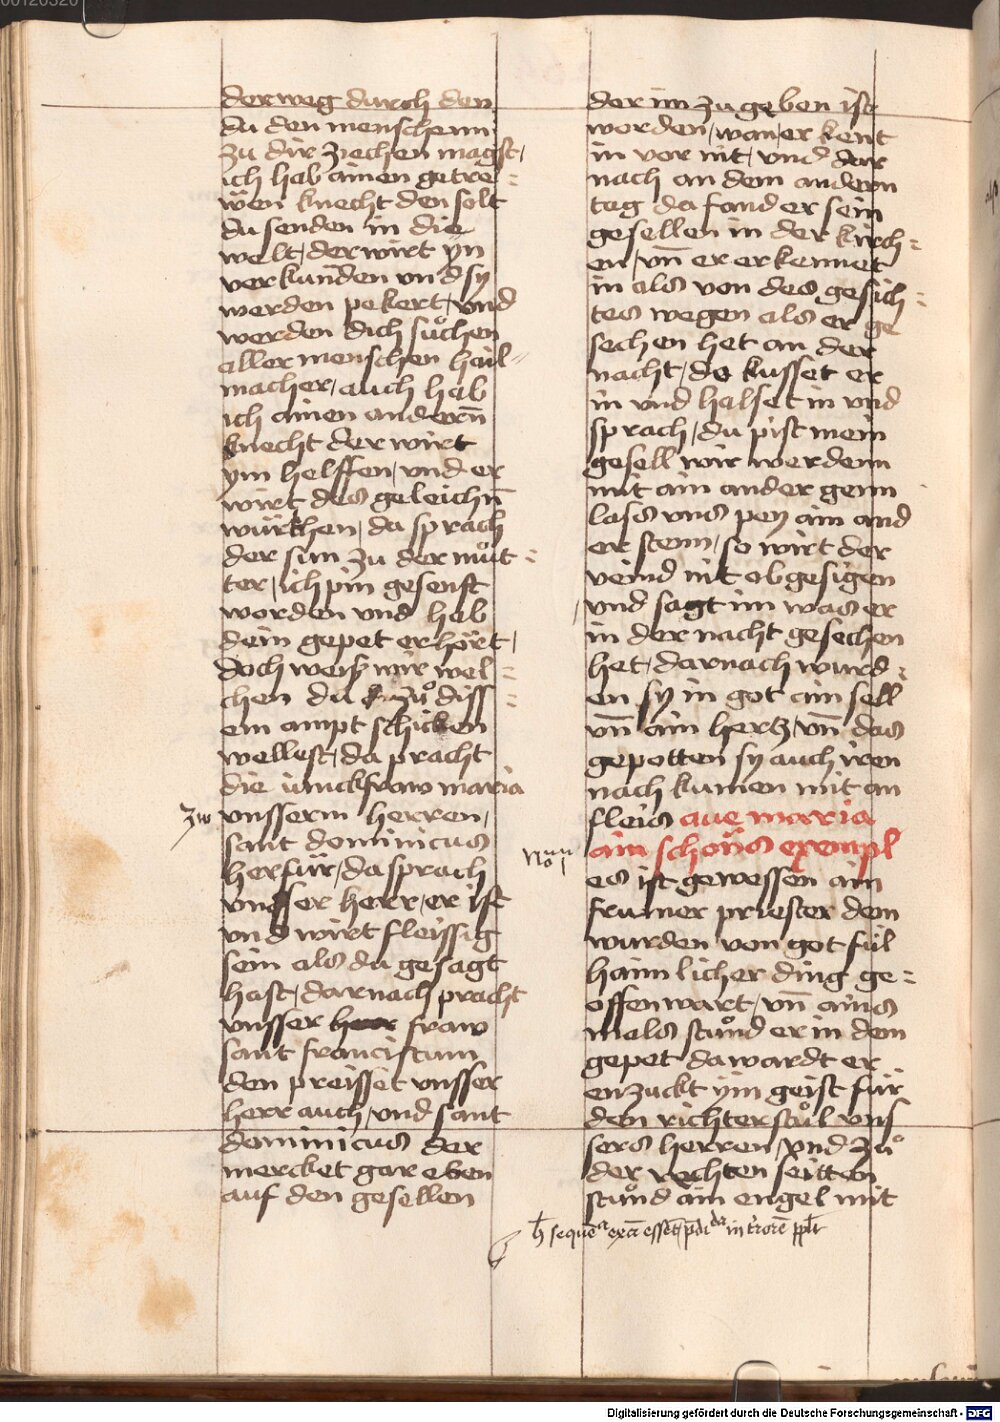 der weg durch den
du den menschenn
zu dir ziechen magst /
ich hab ainen getre =
wen knecht den solt
du senden in die
welt / der wirt yn
verkunden vnd sy
werden pekert / vnd
werden dich suchen
aller menschen hail =
macher / auch hab
ich ainen andern̄
knecht der wirt
ym helffen / vnd er
wirt des geleichn̄
würkhen / da sprach
der sun zu der můt =
ter / ich pin gesenft
worden vnd hab
dein gepet erhört /
doch weiß mir wel =
chen du zů diss =
em ampt schicken
wellest / da pracht
die iunckfraw maria
zw vnsserm herren /
sant dominicus
herfür / da sprach
vnsser herr / er ist
vnd wirt fleissig
sein als du gesagt
hast / darnach pracht
vnsser fraw
sant franciscum
den preisset vnsser
herr auch / vnd sant
dominicus der
mercket gar eben
auf den gesellen
der im zu geben ist
worden / wan er kent
in vor nit / vnd dar
nach an dem andern
tag da fand er sein
gesellen in der kirch =
en / vn̄ er erkennet
in als von des gesich =
tes wegen als er ge
sechen het an der
nacht / do kusset er
in vnd halset in vnd
sprach / du pist mein
gesell wir werdenn
mit ain ander genn
lass vns pey ain and
er stenn / so wirt der
veind nit obgesigen
vnd sagt im was er
in der nacht gesechen
het / darnach wurd =
en sy in got ain sell
vn̄ ain hertz / vn̄ das
gepotten sy auch iren
nach kumen mit an
fleis aue maria
ain schöns exempl
es ist gewessen ain
frumer priester dem
wurden von got fül
haimlicher ding ge =
offenwart / vn̄ ains
mals stůnd er in dem
gepet da wardt er
enzuckt ym geist für
den richterstůl vns
sers herren / vnd zů
der rechten seitten
stůnd ain engel mit